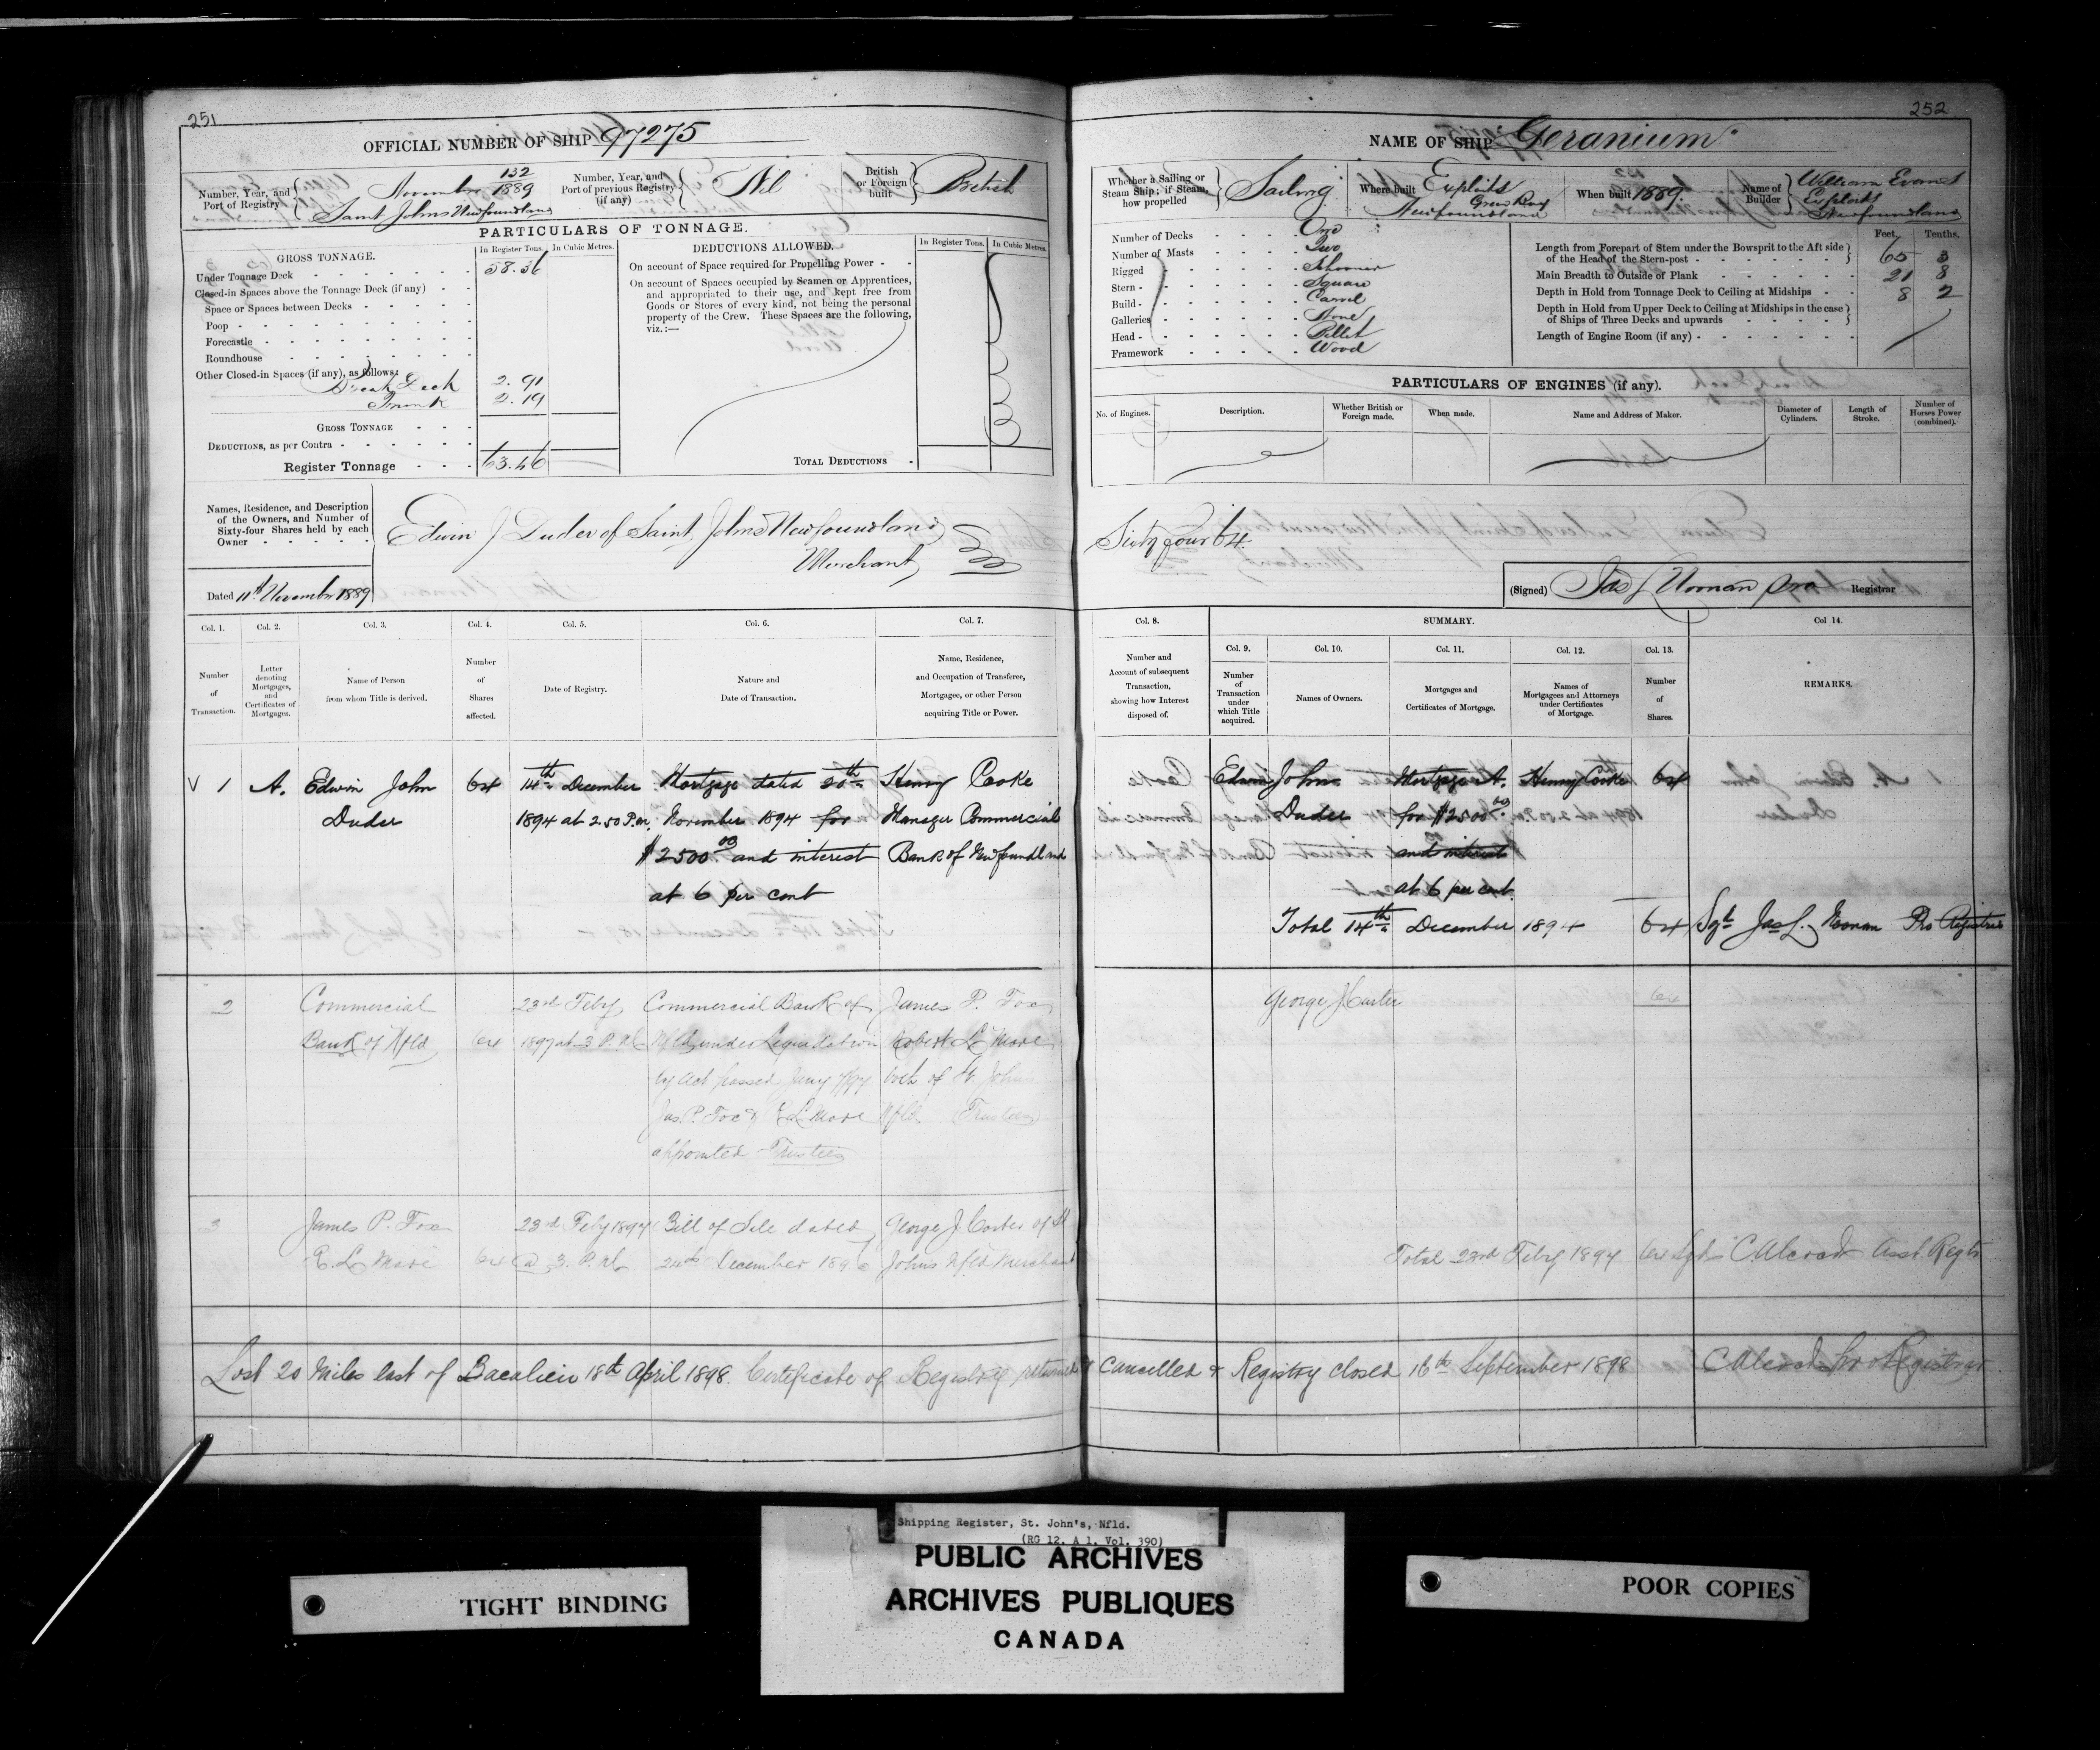 251
OFFICIAL NUMBER OF SHIP 97275
Number, Year, and Port of Registry
132
November 1889
Saint Johns Newfoundland
Number, Year, and Port of previous Registry (if any)
Nil
British or Foreign built
British
PARTICULARS OF TONNAGE.
GROSS TONNAGE.
In Register Tons.
In Cubic Metres.
Under Tonnage Deck 58.36
Closed-in Spaces above the Tonnage Deck (if any)
Space or Spaces between Decks
Poop
Forecastle
Roundhouse
Other Closed-in Spaces (if any), as follows:
Break Deck 2.91
Trunk 2.19
GROSS TONNAGE
DEDUCTIONS, as per Contra
Register Tonnage 63.46
DEDUCTIONS ALLOWED.
In Register Tons.
In Cubic Metres.
On account of Space required for Propelling Power
On account of Spaces occupied by Seamen or Apprentices,
and appropriated to their use, and kept free from
Goods or Stores of every kind, not being the personal
property of the Crew. These Spaces are the following,
viz.:—
TOTAL DEDUCTIONS
Names, Residence, and Description
of the Owners, and Number of
Sixty-four Shares held by each
Owner
Edwin J Duder of Saint Johns Newfoundland
Merchant
Dated 11th November 1889
Col. 1.
Col. 2.
Col. 3.
Col. 4.
Col. 5.
Col. 6.
Col. 7.
Number of Transaction.
Letter denoting Mortgages, and Certificates of Mortgages.
Name of Person from whom Title is derived.
Number of Shares affected.
Date of Registry.
Nature and Date of Transaction.
Name, Residence, and Occupation of Transferee, Mortgagee, or other Person acquiring Title or Power.
V 1 A. Edwin John 64 14th December Mortgage dated 20th Henry Cooke
Duder 1894 at 2.50 P.m. November 1894 for Manager Commercial
$2500.00 and interest Bank of Newfoundland
at 6 per cent
2 Commercial 23rd Feby Commercial Bank of James P. Fox
Bank of Nfld 64 1897 at 3 P.M. Nfld under Liquidation Robert L Mare
by Act passed Jany 7/97 both of St. Johns
Jas. P. Fox & R L Mare Nfld Trustees
appointed Trustees
3 James P. Fox 23rd Feby 1897 Bill of Sale dated George J. Carter of St
R. L. Mare 64 @ 3. P.M. 24th December 1896 Johns Nfld Merchant
Lost 20 Miles East of Bacalieu 18th April 1898. Certificate of Registry returned
252
NAME OF SHIP Geranium
Whether a Sailing or Steam Ship; if Steam, how propelled
Sailing
Where built
Exploits
Green Bay
Newfoundland
When built 1889.
Name of Builder
William Evans
Exploits
Newfoundland
Number of Decks One
Number of Masts Two
Rigged Schooner
Stern Square
Build Carvel
Galleries None
Head Billet
Framework Wood
Feet.
Tenths.
Length from Forepart of Stem under the Bowsprit to the Aft side
of the Head of the Stern-post 65 3
Main Breadth to Outside of Plank 21 8
Depth in Hold from Tonnage Deck to Ceiling at Midships 8 2
Depth in Hold from Upper Deck to Ceiling at Midships in the case
of Ships of Three Decks and upwards
Length of Engine Room (if any)
PARTICULARS OF ENGINES (if any).
No. of Engines.
Description.
Whether British or Foreign made.
When made.
Name and Address of Maker.
Diameter of Cylinders.
Length of Stroke.
Number of Horses Power (combined).
Sixty four 64
(Signed) Jas L Noonan pro Registrar
Col. 8.
SUMMARY.
Col 14.
Col. 9.
Col. 10.
Col. 11.
Col. 12.
Col. 13.
Number and Account of subsequent Transaction, showing how Interest disposed of.
Number of Transaction under which Title acquired.
Names of Owners.
Mortgages and Certificates of Mortgage.
Names of Mortgagees and Attorneys under Certificates of Mortgage.
Number of Shares.
REMARKS.
Edwin John Mortgage A. Henry Cooke 64
Duder for $2500.00
and interest
at 6 per cent.
Total 14th December 1894 64 Sgd Jas L. Noonan Pro Registrar
George J. Carter 64
Total 23rd Feby 1897 64 Sgd C Alcock Asst. Regtr
& Cancelled & Registry closed 16th September 1898 C Alcock Pro Registrar
TIGHT BINDING
Shipping Register, St. John's, Nfld.
(RG 12, A 1, Vol. 390)
PUBLIC ARCHIVES
ARCHIVES PUBLIQUES
CANADA
POOR COPIES